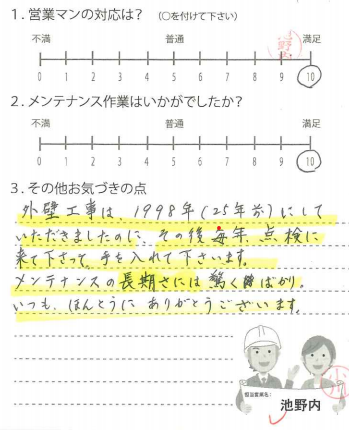 1. 営業マンの対応は? (○を付けて下さい)
不満 普通 満足
0 1 2 3 4 5 6 7 8 9 10
2. メンテナンス作業はいかがでしたか?
不満 普通 満足
0 1 2 3 4 5 6 7 8 9 10
3. その他お気づきの点
外壁工事は、1998年(25年前)にして
いただきましたのに、その後毎年、点検に
来て下さって、手を入れて下さいます。
メンテナンスの長期さには驚くばかり。
いつも、ほんとうにありがとうございます。
担当営業名:
池野内